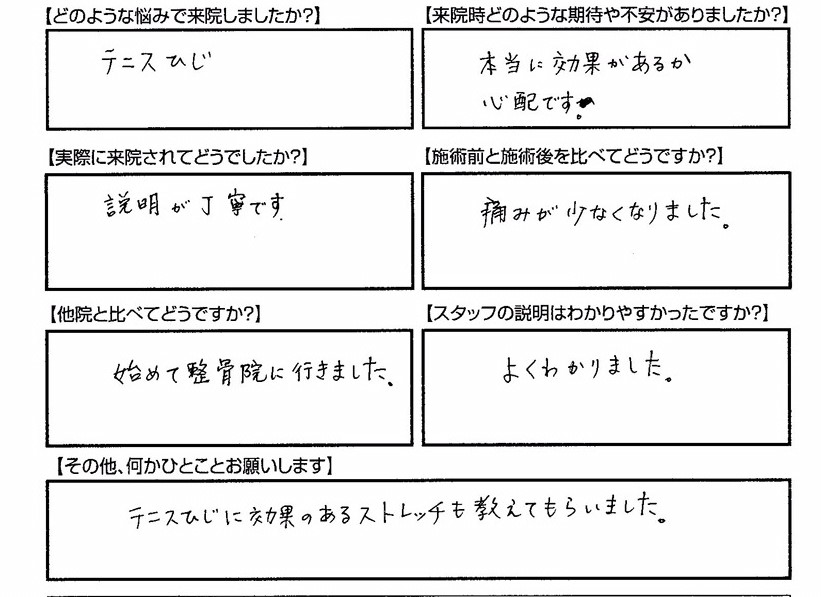 【どのような悩みで来院しましたか?】
テニスひじ
【来院時どのような期待や不安がありましたか?】
本当に効果があるか
心配です。
【実際に来院されてどうでしたか?】
説明が丁寧です
【施術前と施術後を比べてどうですか?】
痛みが少なくなりました。
【他院と比べてどうですか?】
始めて整骨院に行きました。
【スタッフの説明はわかりやすかったですか?】
よくわかりました。
【その他、何かひとことお願いします】
テニスひじに効果のあるストレッチも教えてもらいました。